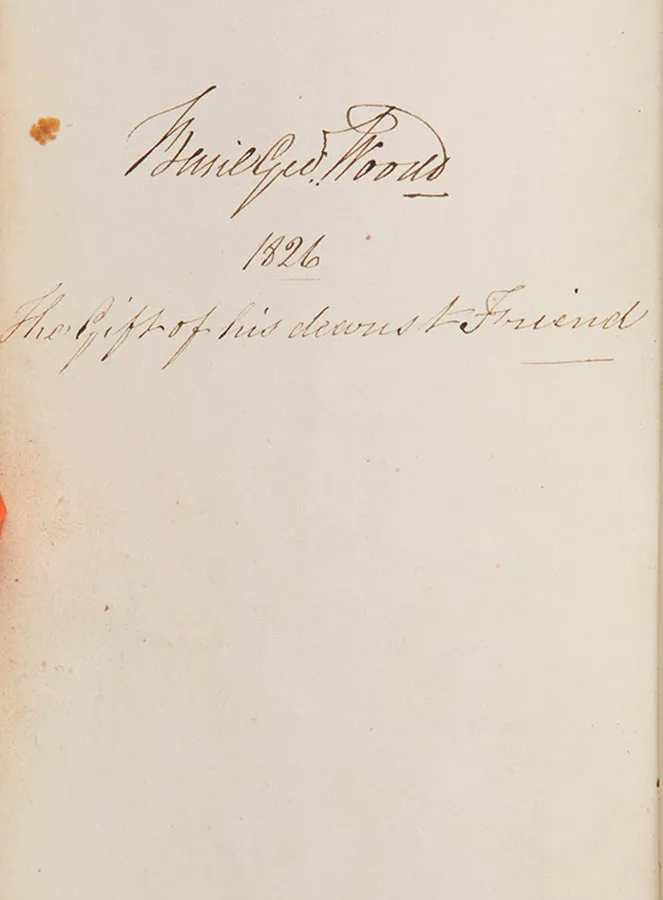 Basil Geo. Woodd
1826
The Gift of his dearest Friend